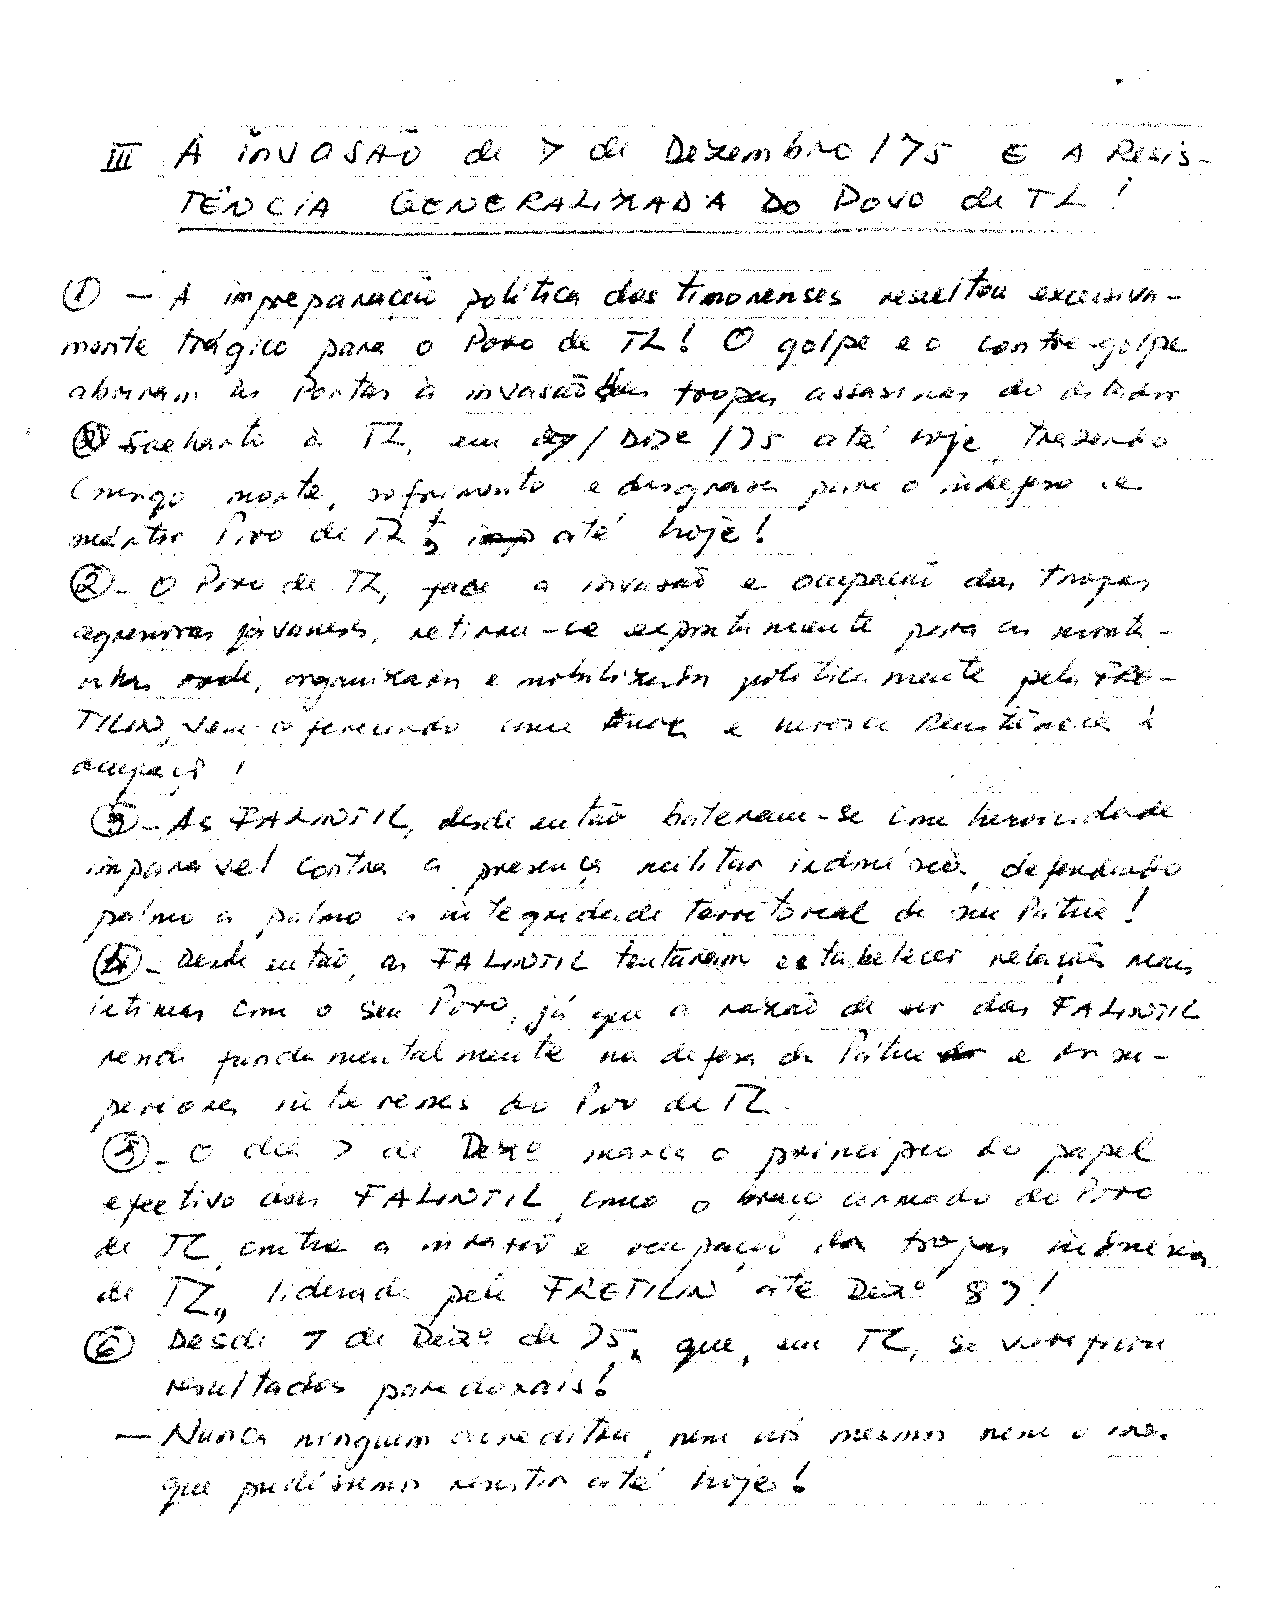 III A INVASÃO de 7 de Dezembro/75 E A RESIS-
TÊNCIA GENERALIZADA DO POVO de TL!
① — A impreparação política dos timorenses resultou excessiva-
mente trágico para o Povo de TL! O golpe e o contra-golpe
abriram as Portas à invasão das tropas assassinas do ditador
Soeharto à TL, em 07/DEZE/75 até hoje, trazendo
consigo morte, sofrimento e desgraça para o indefeso e
mártir Povo de TL até hoje!
② - O Povo de TL, face a invasão e ocupação das tropas
agressivas javanesas, retirou-se para as monta-
nhas onde, organizado e mobilizado politicamente pela FRE-
TILIN, vem oferecendo uma tenaz e heroica Resistência à
ocupação!
③ - As FALINTIL, desde então bateram-se com heroicidade
imparavel contra a presença militar indonésia, defendendo
palmo a palmo a integridade territorial da sua Pátria!
④ - Desde então, as FALINTIL tentaram estabelecer relações mais
íntimas com o seu Povo, já que a razão de ser das FALINTIL
reside fundamentalmente na defesa da Pátria e dos su-
periores interesses do Povo de TL.
⑤ - O dia 7 de Dezº marca o princípio do papel
efectivo das FALINTIL, como o braço armado do Povo
de TL contra a invasão e ocupação das tropas indonésias
de TL, liderada pela FRETILIN até Dezº 87!
⑥ Desde 7 de Dezº de 75, que, em TL, se verificam
resultados paradoxais!
— Nunca ninguém acreditou, nem nós mesmos nem o
que pudéssemos resistir até hoje!